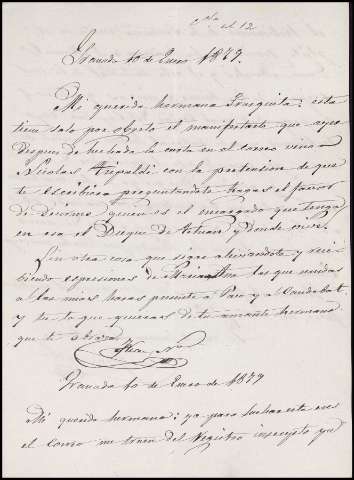 el 12
Granada 10 de Enero 1879.
Mi querida hermana Frasquita: esta
tiene solo por objeto el manifestarte que ayer
despues de hechada la carta en el correo vino
Nicolas con la pretension de que
te escribiera preguntandote hagas el favor
de decirnos quien es el encargado que tenga
en esa el Duque de y donde vive.
Sin otra cosa que sigas aliviandote y reci-
biendo espresiones de las que unidas
a las mias haras presente a Paco y al
y tu lo que quieras de tu amante hermano
que te abraza
Granada 10 de Enero de 1879
Mi querida hermana: ya para hechar esta en
el Correo me traen del Registro inscripto